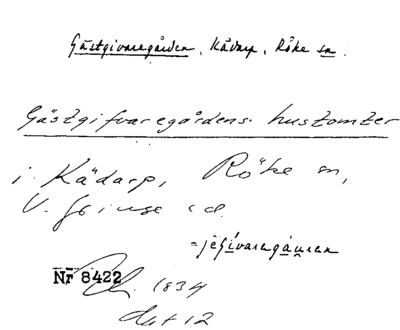 Gästgivaregården, Kädarp, Röke sn.
Gästgifvaregårdens hustomter
i Kädarp, Röke sn,
V. Göinge hd.
Nr 8422
1834
Akt 12